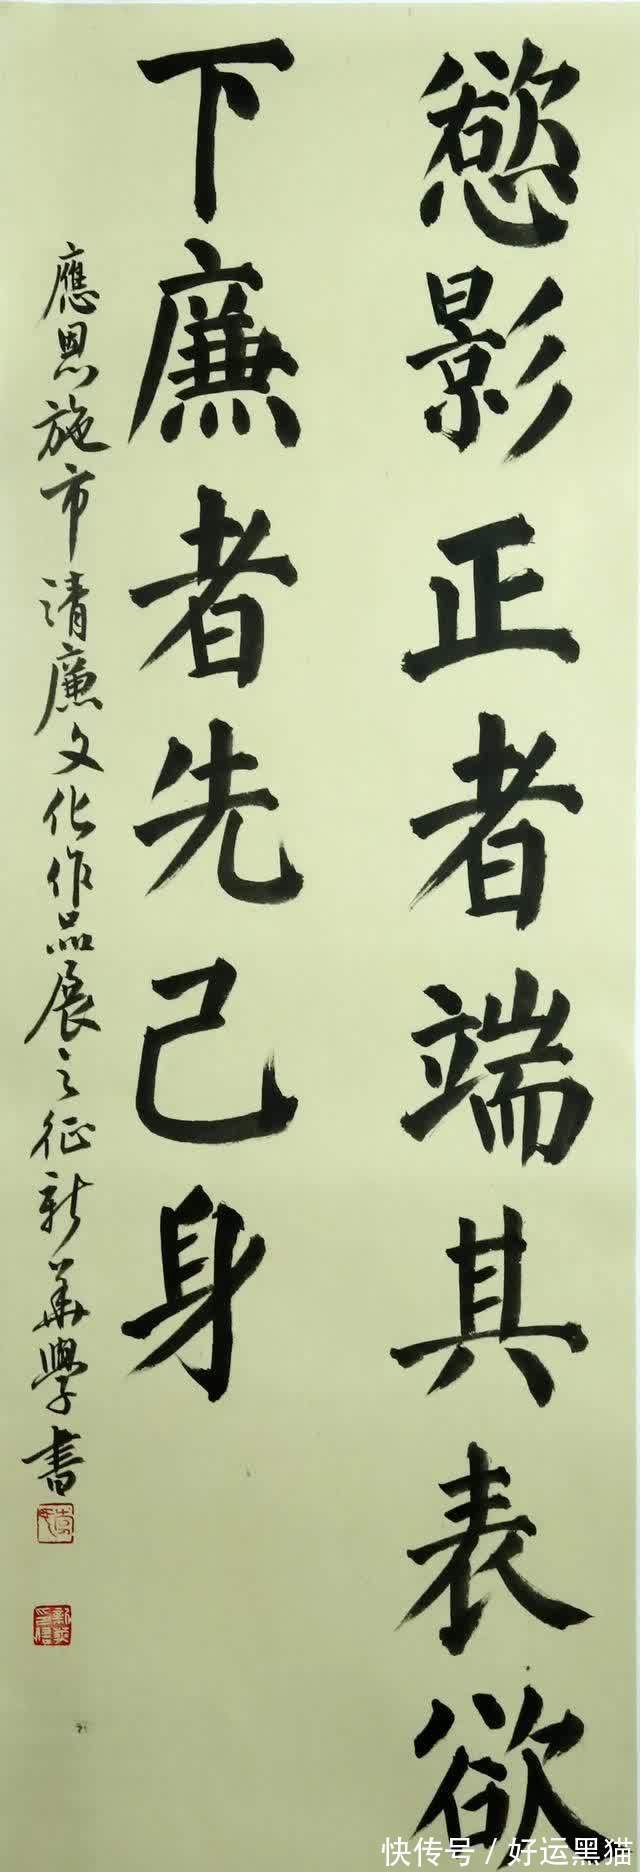 慾影正者端其表欲
下廉者先己身
應恩施市清廉文化作品展之征新華學書
快传号／好运黑猫